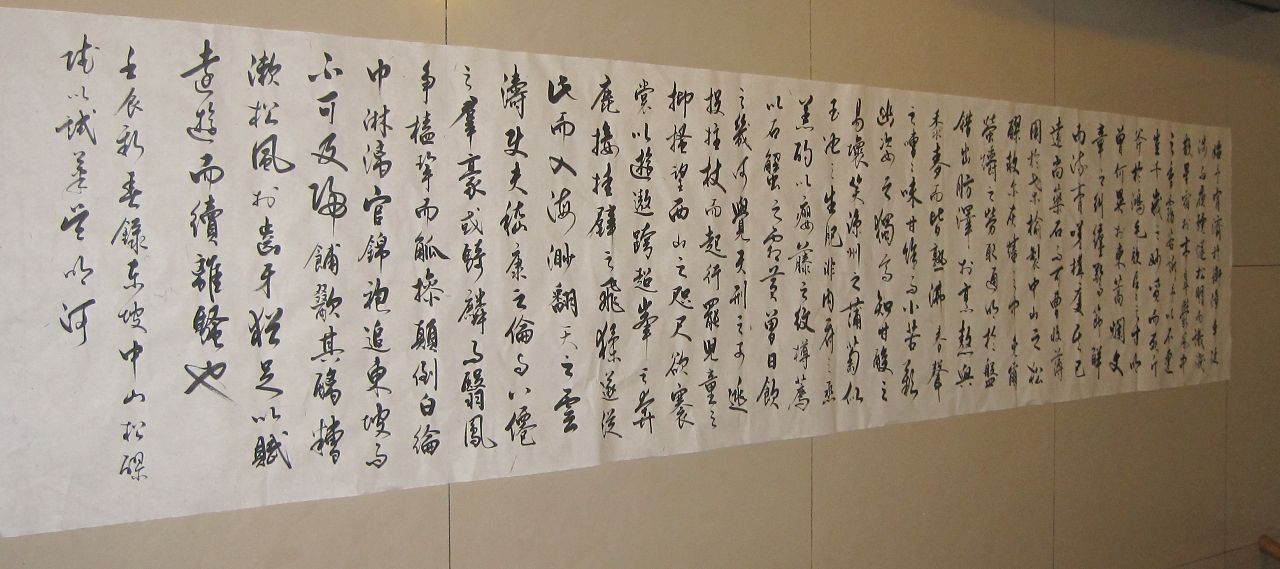 始予宵濟於衡漳車徒
涉而夜號燧松明而識淺
散星宿於亭皋鬱風中
之香霧若訴予以不遭
豈千歲之妙質而死斤
斧於鴻毛效區區之寸明
曾何異於束蒿爛文
章之糾纏驚節解
而流膏嗟構廈其已
遠尚藥石而可曹收薄
用於桑榆製中山之松
醪救爾灰燼之中免爾
螢爝之勞取通明於盤
錯出肪澤於烹熬與
黍麥而皆熟沸舂聲
之嘈嘈味甘餘而小苦歎
幽姿之獨高知甘酸之
易壞笑涼州之蒲萄似
玉池之生肥非內府之烝
羔酌以癭藤之紋樽薦
以石蟹之霜螯曾日飲
之幾何覺天刑之可逃
投拄杖而起行罷兒童之
抑搔望西山之咫尺欲褰
裳以遊遨跨超峯之奔
鹿接挂壁之飛猱遂從
此而入海渺翻天之雲
濤使夫嵇康之倫與八僊
之羣豪或騎麟而翳鳳
爭榼挈而瓢操顛倒白綸
巾淋漓宮錦袍追東坡而
不可及歸餔歠其醨糟
漱松風於齒牙猶足以賦
遠遊而續離騷也
壬辰新春錄東坡中山松醪
賦以試筆 明河